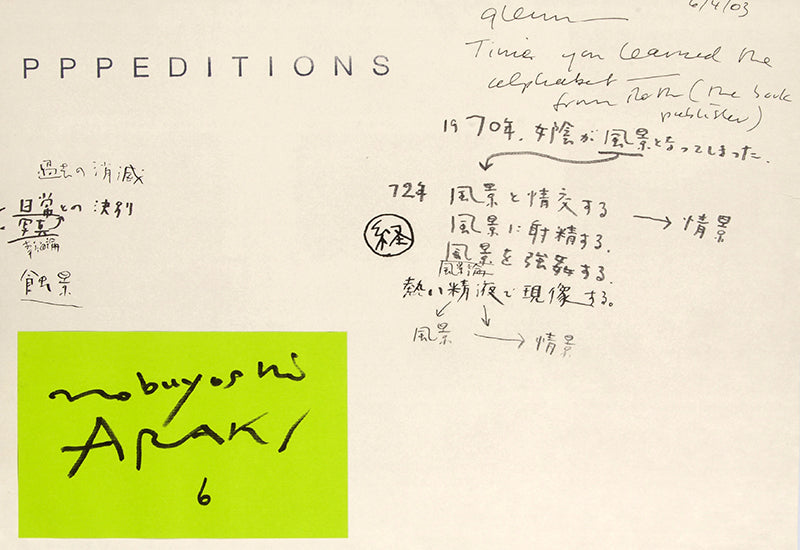 6/4/03
glenn
Time you learned the
alphabet —
from Roth (the book
publisher)
PPPEDITIONS
1970年、女陰が風景となってしまった.
過去の消滅
日常との決別
写真
72年 風景と情交する → 情景
経 風景に射精する.
風景を強姦する.
風景論
蝕景
熱い精液で現像する。
風景 → 情景
nobuyoshi
ARAKI
6